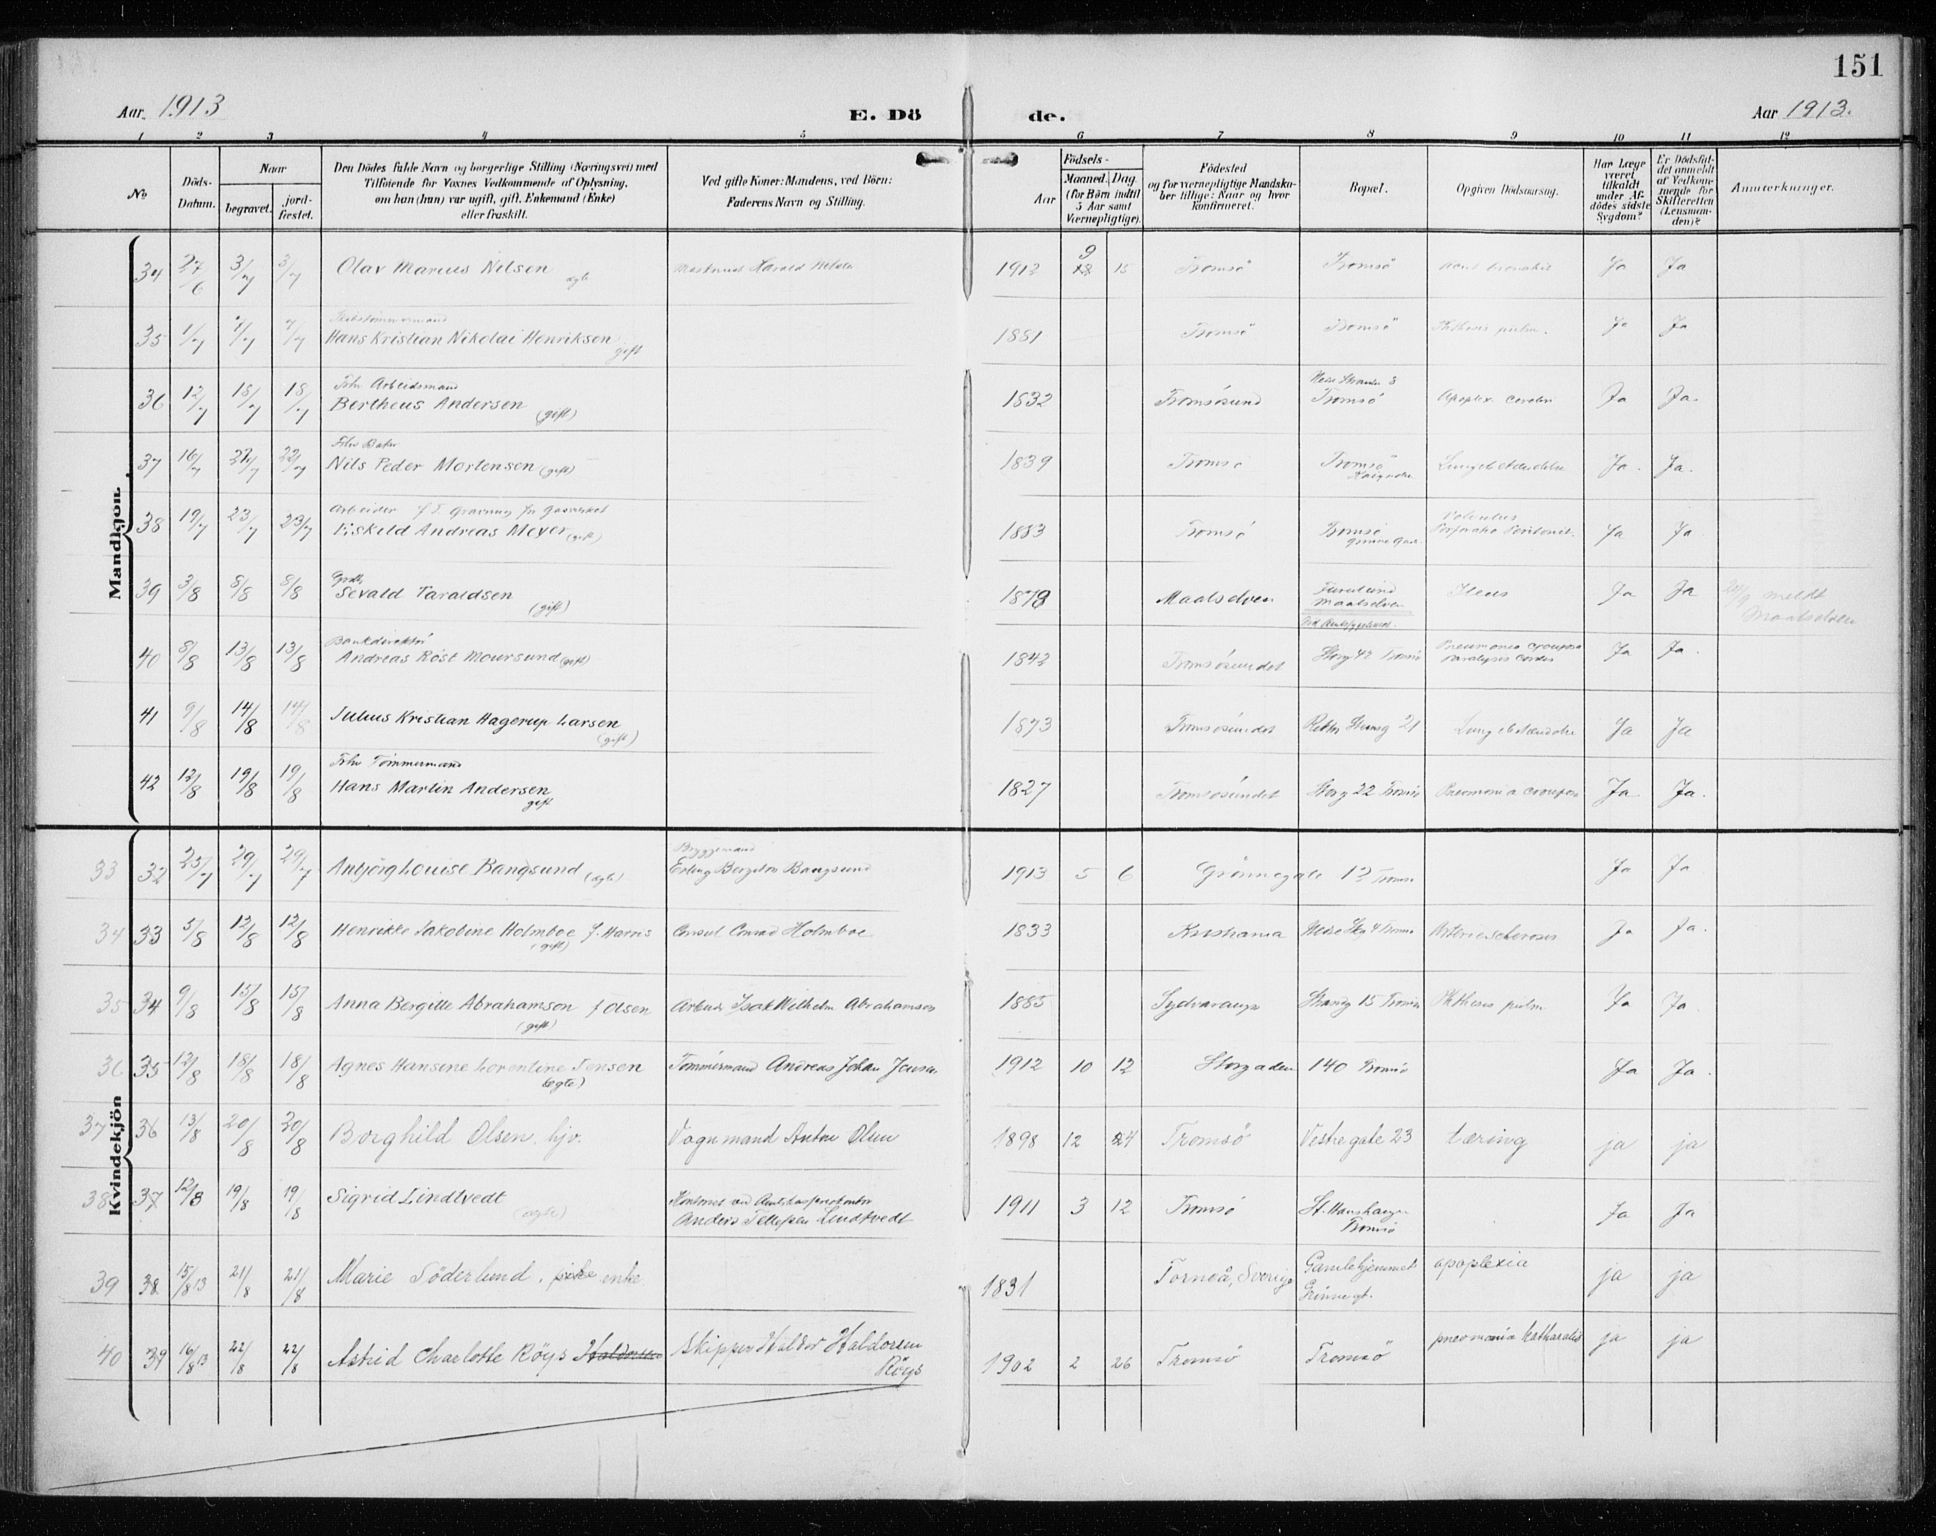 151
Aar 1913 E. Dö de. Aar 1913.
1 2 3 4 5 6 7 8 9 10 11 12
No
Döds-Datum.
Naar
begravet.
jord-fæstet.
Den Dödes fulde Navn og borgerlige Stilling (Næringsvei) med
Tilföiende for Voxnes Vedkommende af Oplysning,
om han (hun) var ugift, gift, Enkemand (Enke)
eller fraskilt.
Ved gifte Koner: Mandens, ved Börn:
Faderens Navn og Stilling.
Födsels-
Aar
Maaned. Dag
(for Börn indtil
5 Aar samt
Værnepligtige).
Födested
og for værnepligtige Mandska-
ber tillige: Naar og hvor
konfirmeret.
Bopæl.
Opgiven Dödsaarsag.
Har Læge
været
tilkaldt
under Af-
dödes sidste
Sygdom?
Er Dödsfal-
det anmeldt
af Vedkom-
mende for
Skifteretten
(Lensman-
den)?
Anmærkninger.
Mandkjön.
34 27/6 3/7 3/7 Olav Marius Nilsen ægte Harald Nilsen 1913 9 15 Tromsö Tromsö Ja Ja
35 1/7 7/7 7/7 Hans Kristian Nikolai Henriksen gift 1851 Tromsö Tromsö Phthisis pulm. Ja Ja
36 12/7 18/7 18/7 Fhv Arbeidsmand
Bertheus Andersen (gift) 1832 Tromsösund Tromsö Apoplex. cerebri Ja Ja.
37 16/7 22/7 22/7 Nils Peder Mortensen (gift) 1839 Tromsö Tromsö Lungebetændelse Ja. Ja.
38 19/7 23/7 23/7 Arbeider
Eskild Andreas Meyer (gift) 1883 Tromsö Tromsö Grönnegade Ja Ja
39 3/8 8/8 8/8 Sevald Taraldsen (gift) 1878 Maalselven Maalselven Ileus Ja Ja meldt Maalselven
40 8/8 13/8 13/8 Bankdirektör
Andreas Röst Moursund (gift) 1843 Tromsösundet Storg 42 Tromsö Pneumonia crouposa
paralysis cordis Ja Ja.
41 9/8 14/8 14/8 Julius Kristian Hagerup Larsen (gift) 1873 Tromsösundet 21 Lungebetændelse Ja Ja
42 12/8 19/8 19/8 Fhv Tömmermand
Hans Martin Andersen gift 1827 Tromsösundet Storg 22 Tromsö Pneumonia crouposa Ja Ja.
Kvindekjön
33 32 23/7 29/7 29/7 Anbjörg Louise Bangsund (ægte) Bryggemand
Erling Bangsund 1913 5 6 Grönnegate 12 Tromsö Ja Ja
34 33 5/8 12/8 12/8 Henrikke Jakobine Holmboe f. Harris (gift) Consul Conrad Holmboe 1833 Kristiania Tromsö Arteriesclerosis Ja Ja.
35 34 9/8 15/8 15/8 Anna Bergitte Abrahamsen f Olsen (gift) Isak Wilhelm Abrahamsen 1885 Sydvaranger Strandg 15 Tromsö Phthisis pulm Ja Ja.
36 35 12/8 18/8 18/8 Agnes Hansine Lorentine Jensen (ægte) Tömmermand Andreas Johan Jensen 1912 10 12 Storgaden 140 Tromsö Ja Ja.
37 36 13/8 20/8 20/8 Borghild Olsen, hjv. Vognmand Anton Olsen 1898 12 24 Tromsö Vestregate 23 tæring ja ja
38 37 12/8 19/8 19/8 Sigrid Lindtvedt (ægte) Anders Tellefsen Lindtvedt 1911 3 12 Tromsö St. Hanshaugen
Tromsö Ja Ja
39 38 15/8 13 21/8 21/8 Marie Söderlund, enke 1831 Torneå, Sverige Gamlehjemmet
Grönnegt. apoplexia ja ja
40 39 16/8 13 22/8 22/8 Astrid Charlotte Röys Haldorsen Skipper Haldor Haldorsen
Röys 1902 2 26 Tromsö Tromsö pneumonia katharalis ja ja